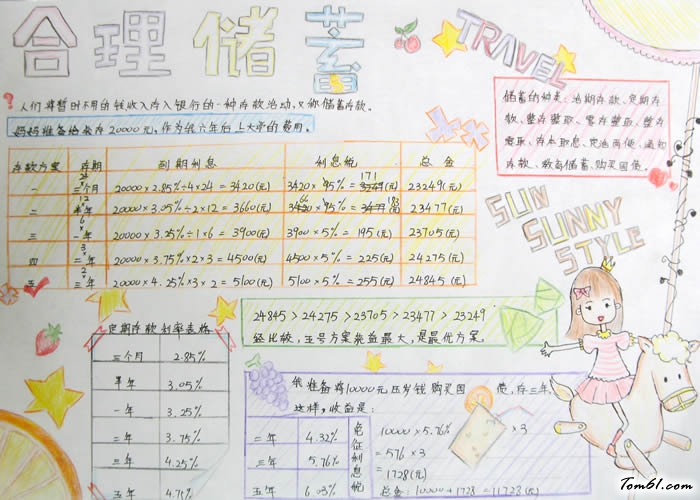 合理储蓄
TRAVEL
?人们将暂时不用的钱收入存入银行的一种存款活动,又称储蓄存款。
妈妈准备给我存20000元,作为我六年后上大学的费用。
储蓄的种类:活期存款、定期存
款、整存整取、零存整取、整存
零取、存本取息、定活两便、通知
存款、教育储蓄、购买国债。
存款方案 存期 到期利息 利息税 总金
一 三个月 24× 20000×2.85%÷4×24=3420(元) 3420×5%=171(元) 23249(元)
二 半年 12× 20000×3.05%÷2×12=3660(元) 3660×5%=183(元) 23477(元)
三 一年 6× 20000×3.25%÷1×6=3900(元) 3900×5%=195(元) 23705(元)
四 二年 3× 20000×3.75%×2×3=4500(元) 4500×5%=225(元) 24275(元)
五 三年 2× 20000×4.25%×3×2=5100(元) 5100×5%=255(元) 24845(元)
SUN
SUNNY
STYLE
24845>24275>23705>23477>23249
经比较,五号方案收益最大,是最优方案。
定期存款利率表格
三个月 2.85%
半年 3.05%
一年 3.25%
二年 3.75%
三年 4.25%
五年 4.75%
我准备将10000元压岁钱购买国债,存三年,
这样,收益是:
二年 4.32%
三年 5.76%
五年 6.03%
免征利息税
10000×5.76%×3
=576×3
=1728(元)
总金:10000+1728=11728(元)
Tom61.com